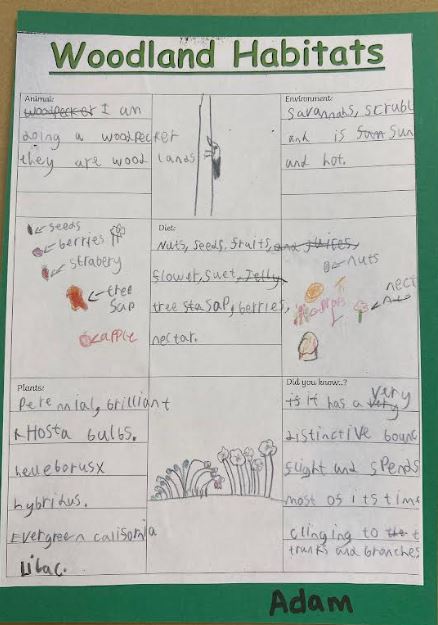 Woodland Habitats
Animal:
woodpecker I am
doing a woodpecker
they are wood lands
Environment:
Savannahs, scrubl
and is Sun Sun
and hot.
seeds
berries
strabery
tree
sap
apple
Diet:
Nuts, seeds, fruits, and juices,
flower, suet, Jelly
tree sta sap, berries,
nectar.
nuts
nect
Plants:
Perennial, brilliant
kHosta bulbs.
heueborusx
hybridus.
Evergreen califoria
Lilac.
Did you know..?
is it has a very very
distinctive bounc
flight and spends
most of its time
clinging to the t
trunks and branches
Adam